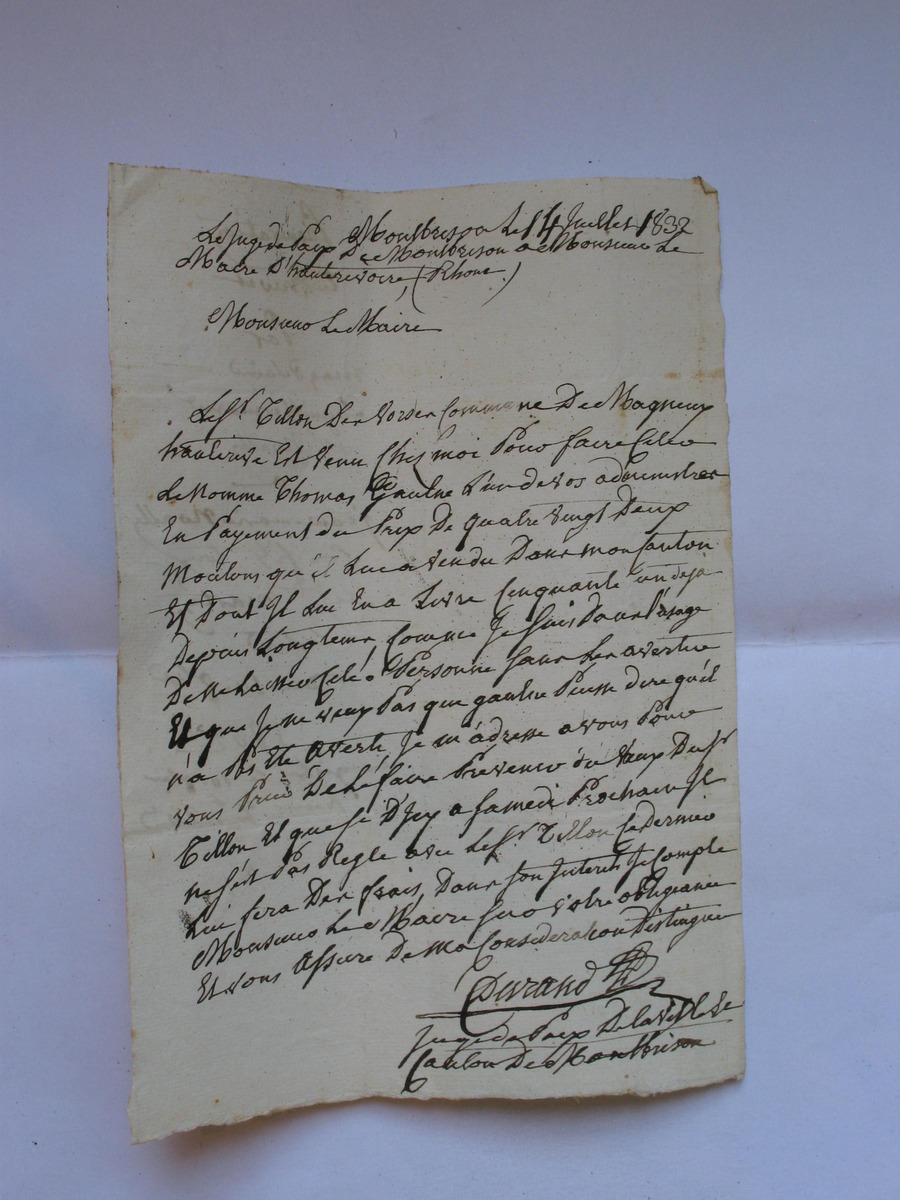 Montbrison Le 14 Juillet 1832
Le Juge de Paix De Montbrison a Monsieur Le
Maire D'hauterivoire, (Rhone)
Monsieur Le Maire
Le Sr. Tillon Des Vorses Commune De Magneux
hauterive Est venu Chez moi Pour faire Citer
Le Nommé Thomas Gaulne L'un de vos administrés
En Payement du Prix De quatre vingt Deux
Moutons qu'il Lui a vendu Dans mon Canton
Et Dont Il Lui En a Livré Cinquante un deja
Depuis Longtems, Comme Je suis Dans l'usage
De ne Laisser Cité Personne sans Les avertir
Et que Je ne veux Pas que gaulne Puisse dire qu'il
n'a Pas Eté averti, Je m'adresse a vous Pour
vous Prier De Le faire Prevenir du vœux Du Sr
Tillon Et que si D'Icy a Samedi Prochain Il
ne s'est Pas Regle avec Le Sr. Tillon Ce dernier
Lui fera Des frais, Dans son Interet Je Compte
Monsieur Le Maire sur votre obligeance
Et vous assure De ma Consideration Distinguée
Durand
Juge de Paix De la ville Et
Canton De Montbrison